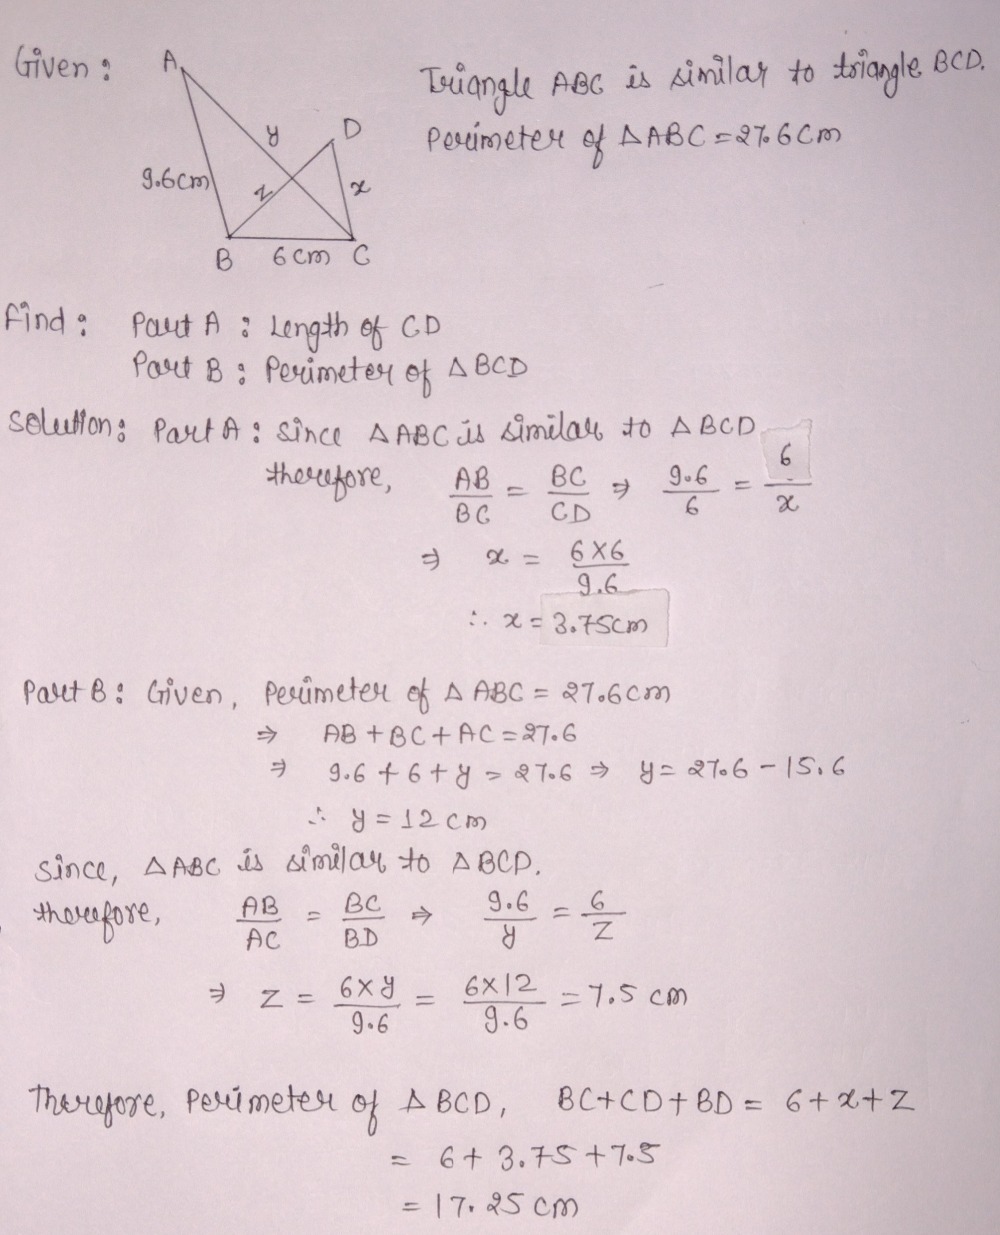 Given :
A
y
D
9.6cm
z
x
B 6cm C
Triangle ABC is similar to triangle BCD.
Perimeter of △ABC = 27.6cm
Find : Part A : Length of CD
Part B : Perimeter of △BCD
Solution : Part A : Since △ABC is similar to △BCD
therefore, AB/BC = BC/CD ⇒ 9.6/6 = 6/x
⇒ x = 6×6/9.6
∴ x = 3.75cm
Part B : Given, Perimeter of △ABC = 27.6cm
⇒ AB + BC + AC = 27.6
⇒ 9.6 + 6 + y = 27.6 ⇒ y = 27.6 - 15.6
∴ y = 12 cm
Since, △ABC is similar to △BCD.
therefore, AB/AC = BC/BD ⇒ 9.6/y = 6/z
⇒ z = 6×y/9.6 = 6×12/9.6 = 7.5 cm
Therefore, Perimeter of △BCD, BC+CD+BD = 6+x+z
= 6+ 3.75 + 7.5
= 17.25 cm